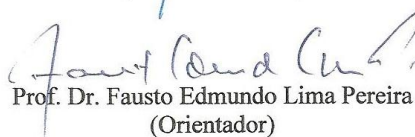 Prof. Dr. Fausto Edmundo Lima Pereira
(Orientador)